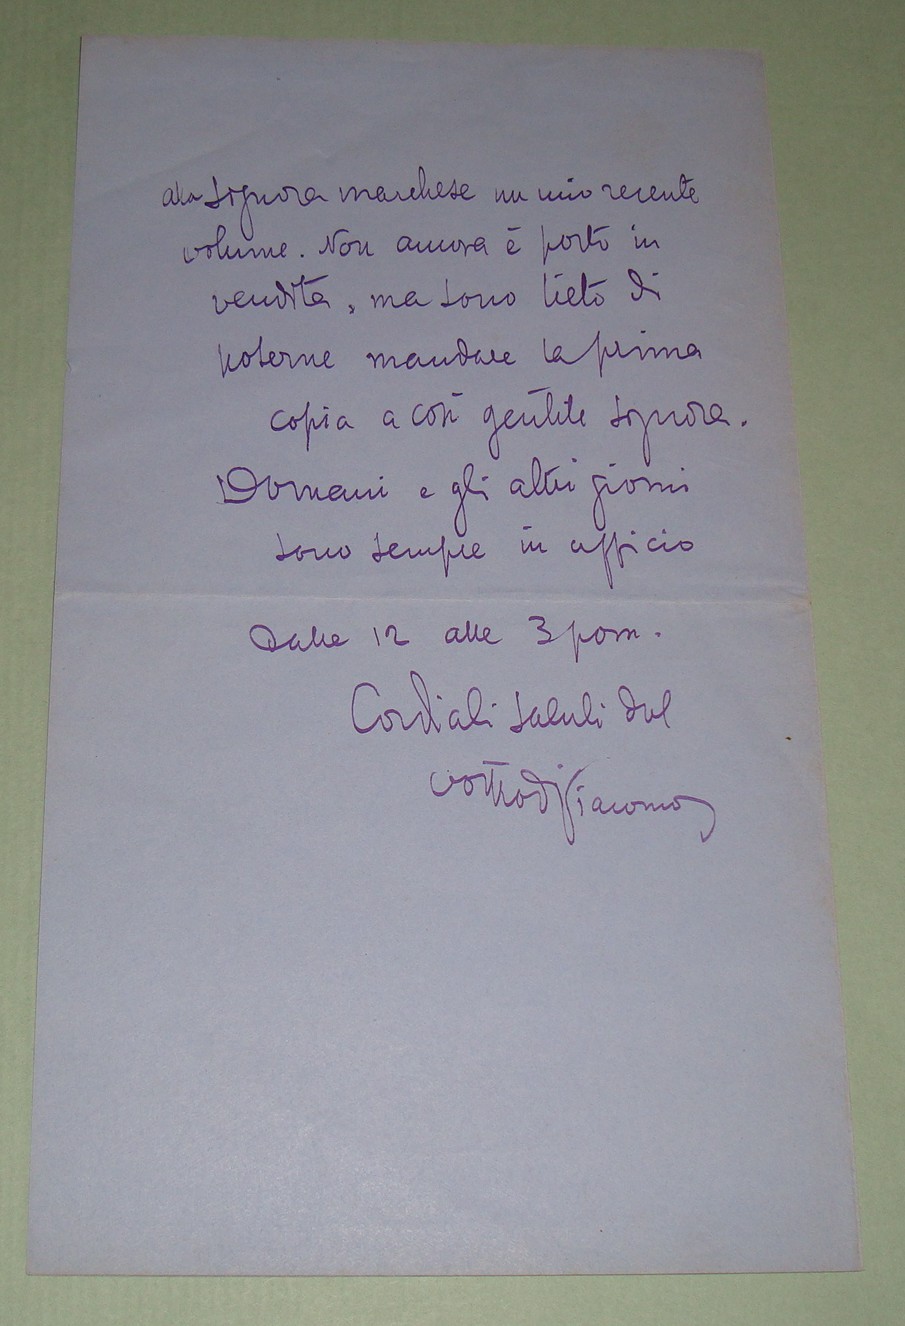 alla Signora Marchese un mio recente
volume. Non ancora è posto in
vendita, ma sono lieto di
poterne mandare la prima
copia a così gentile signora.
Domani e gli altri giorni
sono sempre in ufficio
dalle 12 alle 3 pom.
Cordiali saluti dal
vostro di Giacomo